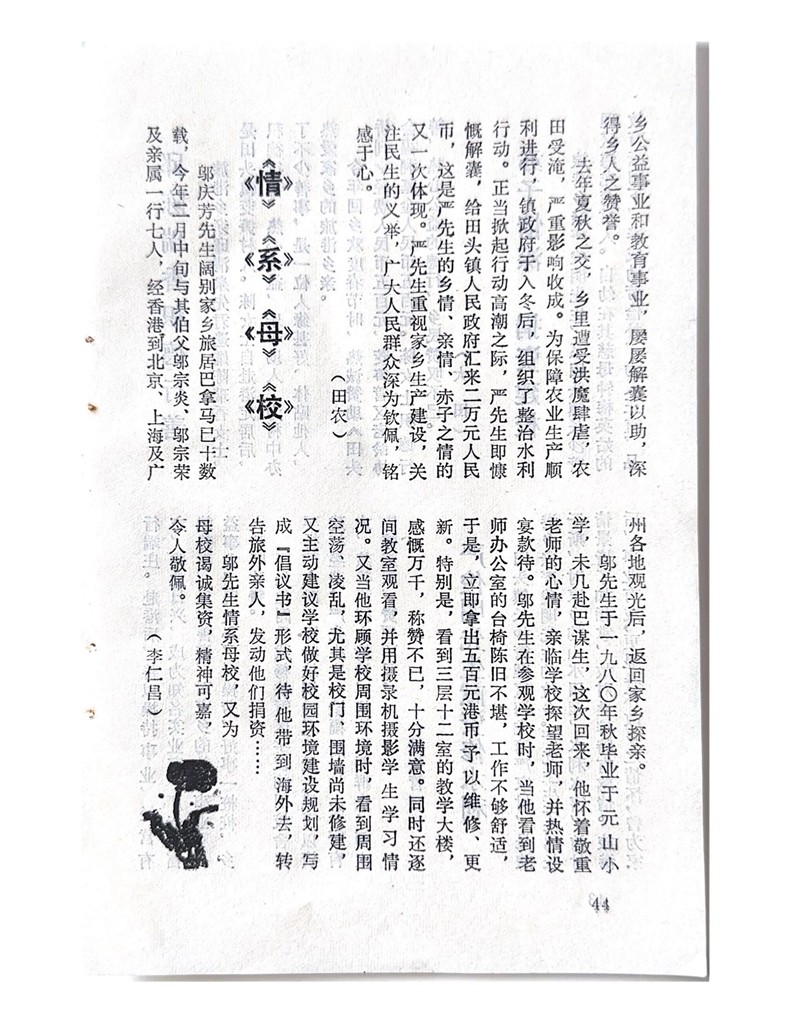 乡公益事业和教育事业，屡屡解囊以助，深
得乡人之赞誉。
去年夏秋之交，乡里遭受洪魔肆虐，农
田受淹，严重影响收成。为保障农业生产顺
利进行，镇政府于入冬后，组织了整治水利
行动。正当掀起行动高潮之际，严先生即慷
慨解囊，给田头镇人民政府汇来二万元人民
币，这是严先生的乡情、亲情、赤子之情的
又一次体现。严先生重视家乡生产建设，关
注民生的义举，广大人民群众深为钦佩，铭
感于心。
（田农）
情系母校
邬庆芳先生阔别家乡旅居巴拿马已十数
载，今年二月中旬与其伯父邬宗炎、邬宗荣
及亲属一行七人，经香港到北京、上海及广
州各地观光后，返回家乡探亲。
邬先生于一九八〇年秋毕业于元山小
学，未几赴巴谋生。这次回来，他怀着敬重
老师的心情，亲临学校探望老师，并热情设
宴款待。邬先生在参观学校时，当他看到老
师办公室的台椅陈旧不堪，工作不够舒适，
于是，立即拿出五百元港币予以维修、更
新。特别是，看到三层十二室的教学大楼，
感慨万千，称赞不已，十分满意。同时还逐
间教室观看，并用摄录机摄影学生学习情
况。又当他环顾学校周围环境时，看到周围
空荡、凌乱，尤其是校门、围墙尚未修建，
又主动建议学校做好校园环境建设规划，写
成『倡议书』形式，待他带到海外去，转
告旅外亲人，发动他们捐资……
邬先生情系母校，又为
母校谒诚集资，精神可嘉，
令人敬佩。
（李仁昌）
44